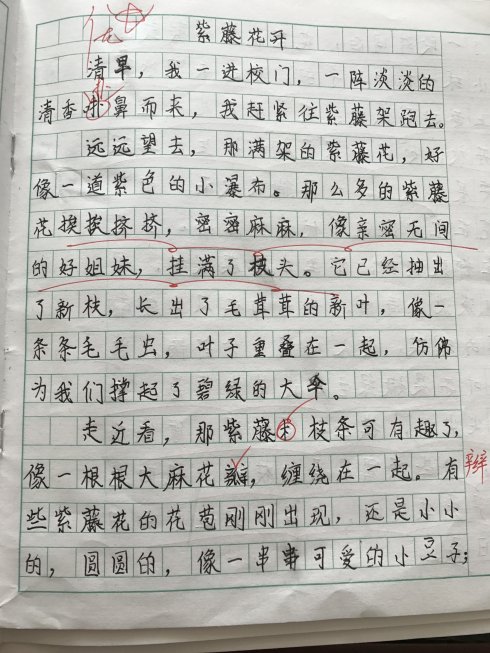 优
紫藤花开
清早，我一进校门，一阵淡淡的
清香扑鼻而来，我赶紧往紫藤架跑去。
远远望去，那满架的紫藤花，好
像一道紫色的小瀑布。那么多的紫藤
花挨挨挤挤，密密麻麻，像亲密无间
的好姐妹，挂满了枝头。它已经抽出
了新枝，长出了毛茸茸的新叶，像一
条条毛毛虫，叶子重叠在一起，仿佛
为我们撑起了碧绿的大伞。
走近看，那紫藤 枝条可有趣了，
像一根根大麻花瓣，缠绕在一起。有 辫
些紫藤花的花苞刚刚出现，还是小小
的，圆圆的，像一串串可爱的小豆子；